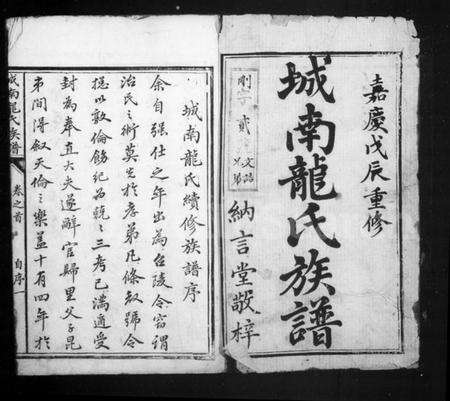 嘉慶戊辰重修
城南龍氏族譜
納言堂敬梓
剛字
貳
城南龍氏續修族譜序
余自强仕之年出為台陵令竊謂
治民之術莫先於孝弟凡條教號令
揔以敦倫飭紀為兢兢三考已滿適受
封為奉直大夫遂辭官歸里父子昆
弟間得叙天倫之樂葢十有四年於
城南龍氏族譜
卷之首
自序